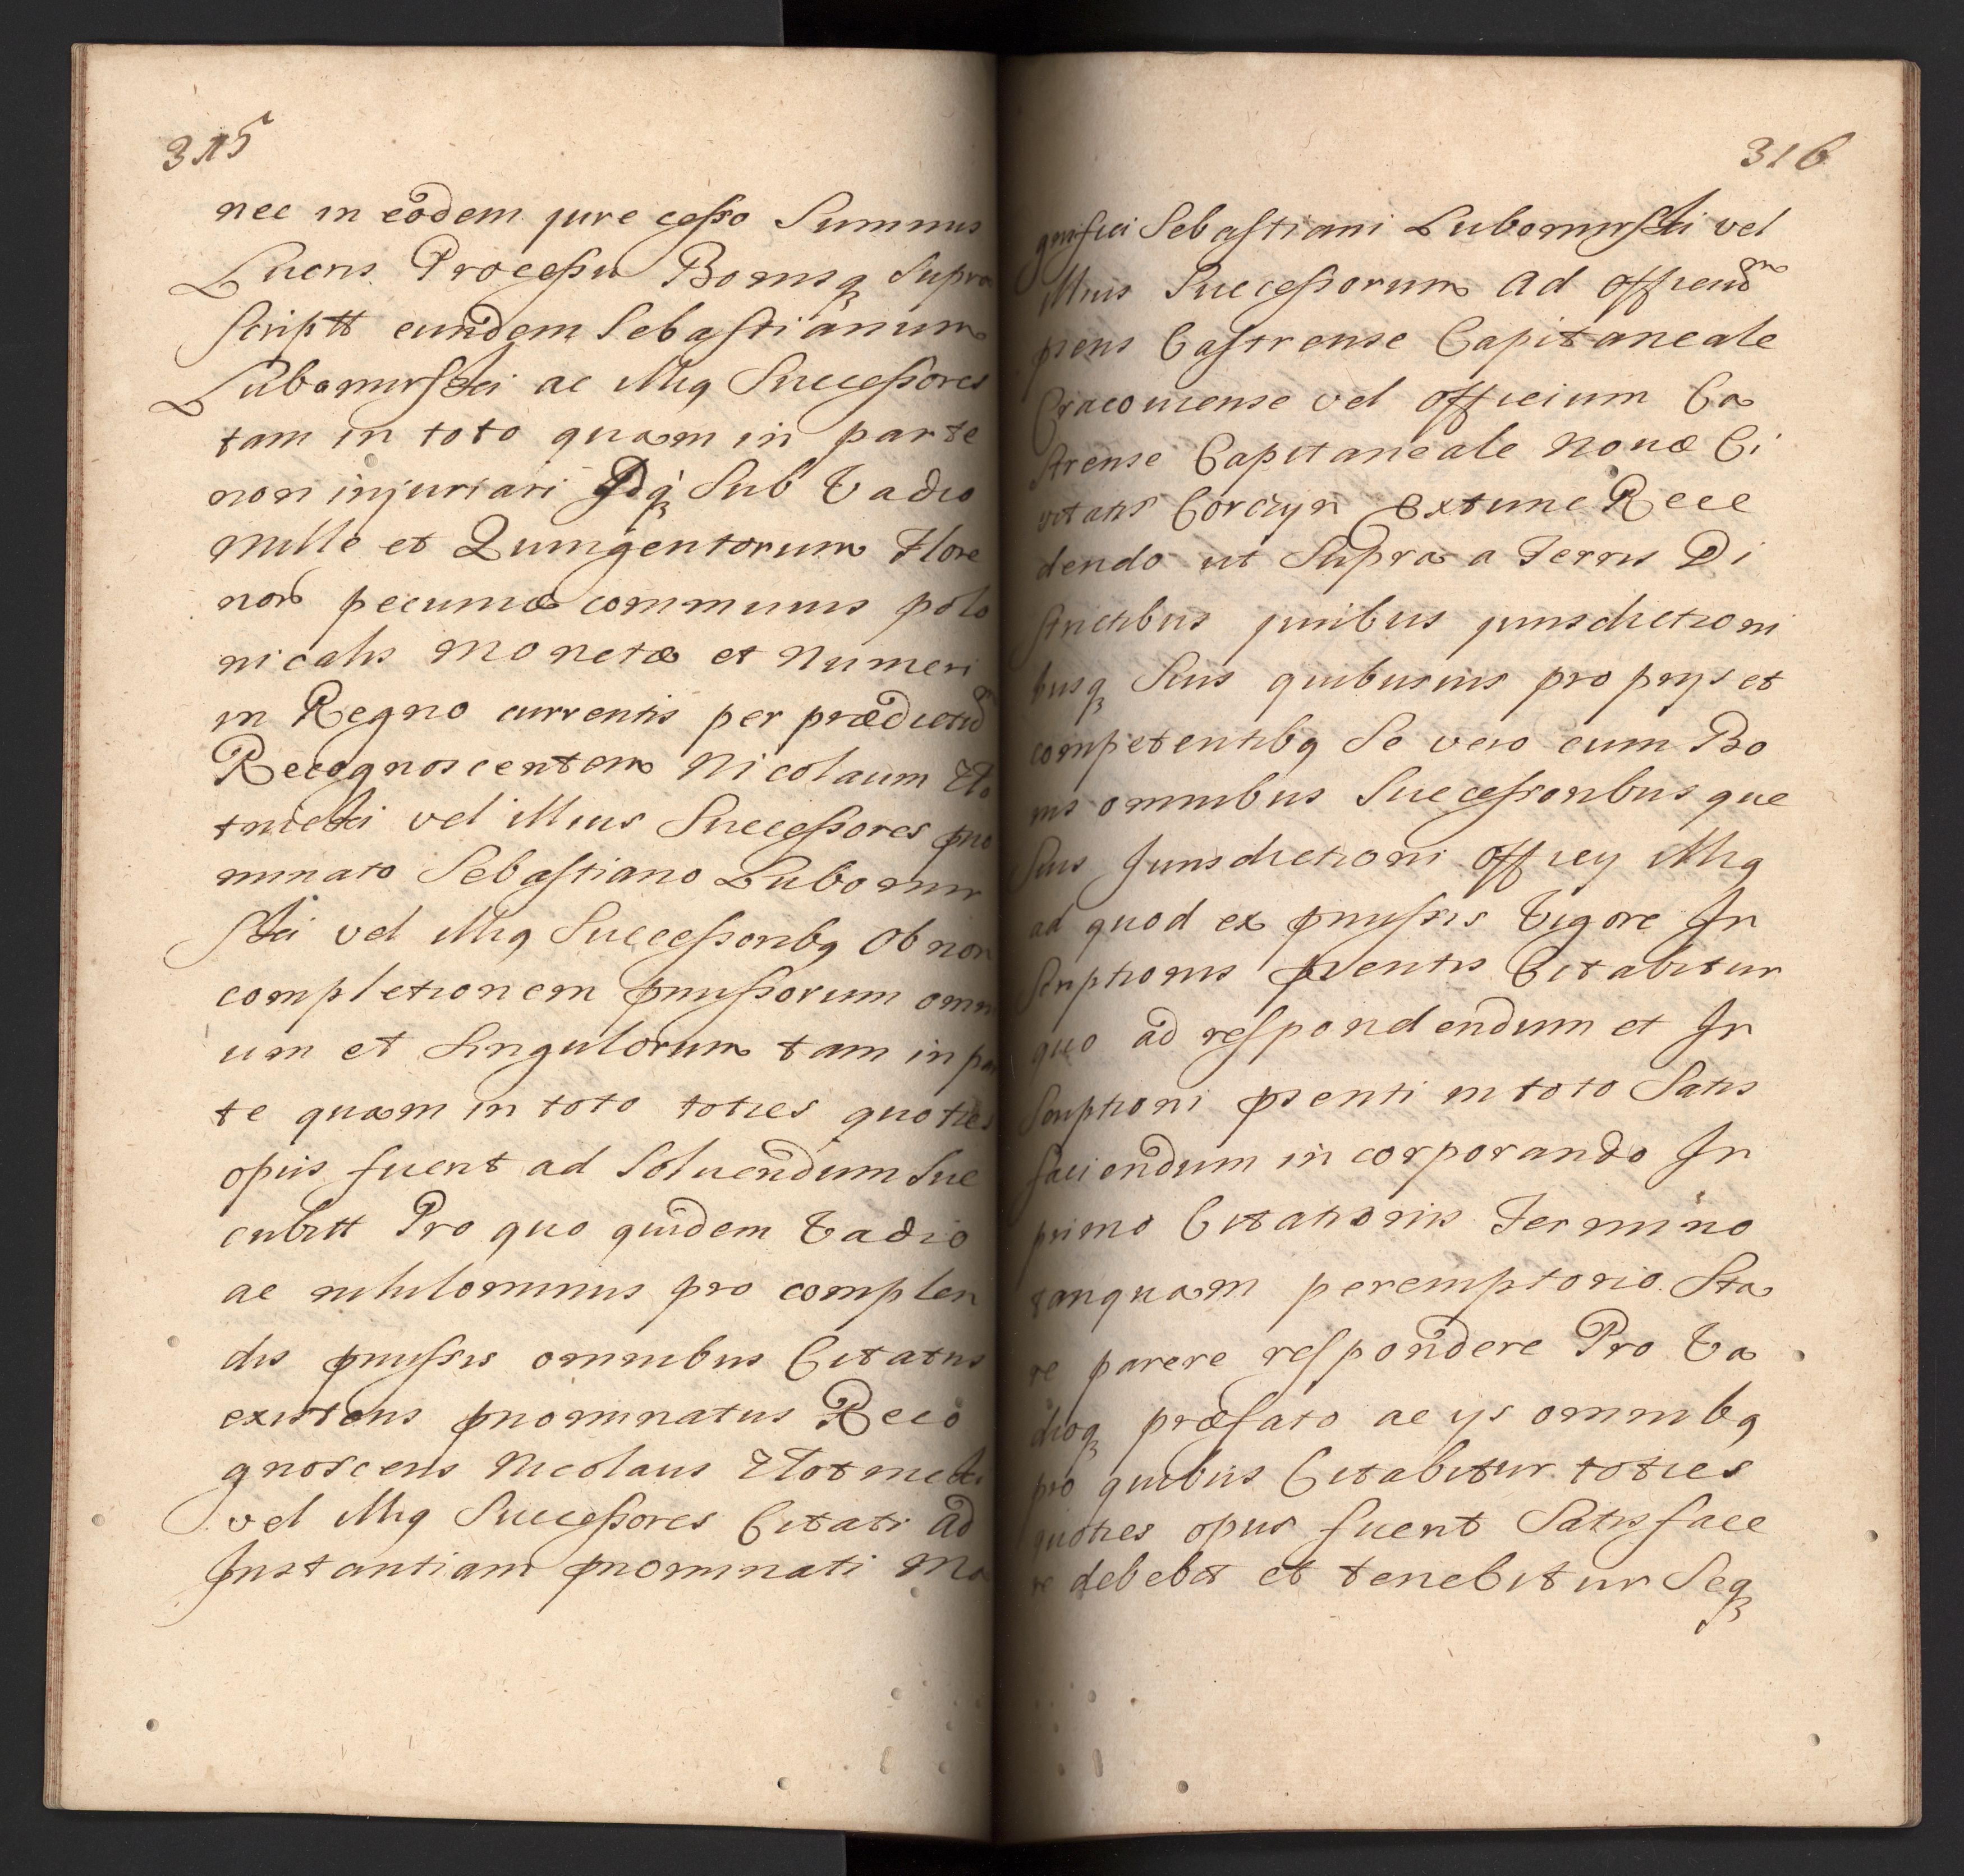 315
nec in eodem jure cesso Summis
Lucris Processu Bonisq Supra
scriptt eundem Sebastianum
Lubomirski ac illiq Successores
tam in toto quam in parte
non injuriari Idq Sub Vadio
mille et Quingentorum Flore
nor pecuniæ communis polo
nicalis Monetæ et Numeri
in Regno currentis per prædictū
Recognoscentem Nicolaum
vel illius Successores pno
minato Sebastiano Lubomir
ski vel illiq Successoribq Ob non
completionem pmissorum omni
um et Singulorum tam in par
te quam in toto toties quoties
opus fuerit ad Soluendum Suc
cubitt Pro quo quidem Vadio
ac nihilominus pro complen
dis pmissis omnibus Citatus
existens pnominatus Reco
gnoscens Nicolaus
vel illiq Successores Citati ad
Instantiam pnominati Ma
316
gnifici Sebastiani Lubomirski vel
illius Successorum ad officium
pñens Castrense Capitaneale
Cracouiense vel officium Ca
strense Capitaneale Nouæ Ci
vitatis Corczyn Extunc Rece
dendo ut Supra a Terris Di
strictibus juribus jurisdictioni
busq Suis quibusuis proprys et
competentibq Se vero cum Bo
nis omnibus Successoribus que
Suis Jurisdictioni officy illiq
ad quod ex pmissis Vigore In
scriptionis pñentis Citabitur
quo ad respondendum et In
scriptioni pñenti in toto Satis
faciendum in corporando In
primo Citationis Termino
tanquam peremptorio Sta
re parere respondere Pro Va
dioq præfato ac ys omnibq
pro quibus Citabitur toties
quoties opus fuerit Satisface
re debebit et tenebitur Seq